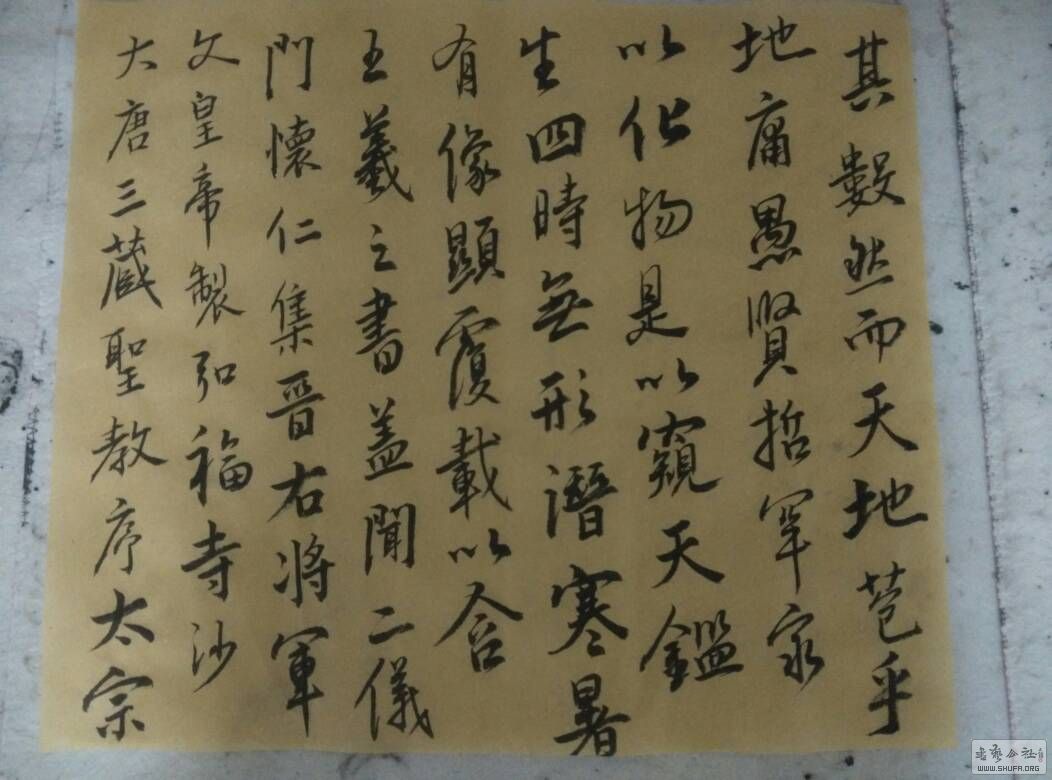 大唐三藏聖教序太宗
文皇帝製弘福寺沙
門懷仁集晉右將軍
王羲之書蓋聞二儀
有像顯覆載以含
生四時無形潛寒暑
以化物是以窺天鑑
地庸愚賢哲罕家
其數然而天地苞乎
書藝公社
WWW.SHUFA.ORG